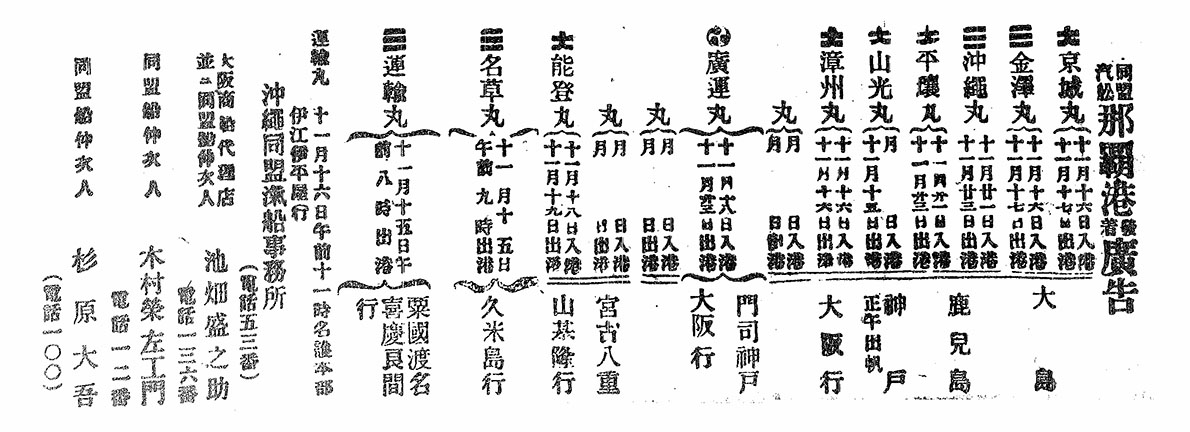 同盟汽船那覇港發着廣告
京城丸 十一月十六日入港 十一月十七日出港
金澤丸 十一月十六日入港 十一月十七日出港
大島
沖繩丸 十一月廿一日入港 十一月廿三日出港
平壤丸
鹿兒島
山光丸 月 日入港 十一月十五日出港
神戸
正午出帆
漳州丸 十一月十六日入港 十一月十六日出港
大阪行
丸 月 月 日入港
廣運丸
門司神戸
大阪行
丸 月 月 日入港 日出港
丸 月 月 日入港 日出港
宮古八重
能登丸 十一月十八日入港 十一月十九日出港
山基隆行
名草丸 十一月十五日午前九時出港
久米島行
運輸丸 十一月十五日午前八時出港
粟國渡名
喜慶良間
行
運輸丸 十一月十六日午前十一時名護本部
伊江伊平屋行
沖繩同盟汽船事務所
(電話五三番)
大阪商船代理店
並ニ同盟船仲次人 池畑盛之助
電話一三六番
同盟船仲次人 木村榮左工門
電話一二番
同盟船仲次人 杉原大吾
(電話一〇〇)